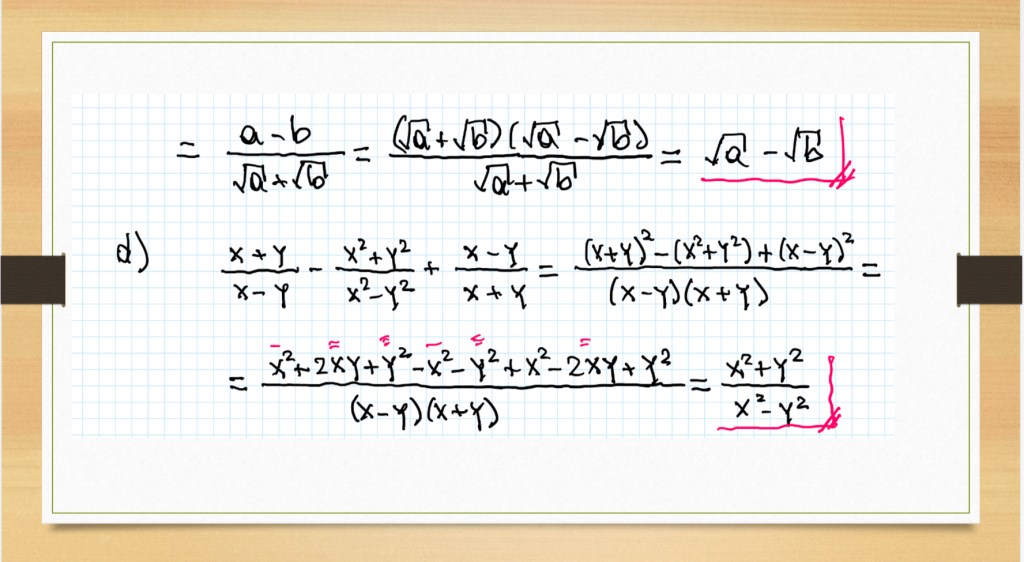 = (a-b)/(√a+√b) = ((√a+√b)(√a-√b))/(√a+√b) = √a-√b
d) (x+y)/(x-y) - (x²+y²)/(x²-y²) + (x-y)/(x+y) = ((x+y)²-(x²+y²)+(x-y)²)/((x-y)(x+y)) =
= (x²+2xy+y²-x²-y²+x²-2xy+y²)/((x-y)(x+y)) = (x²+y²)/(x²-y²)